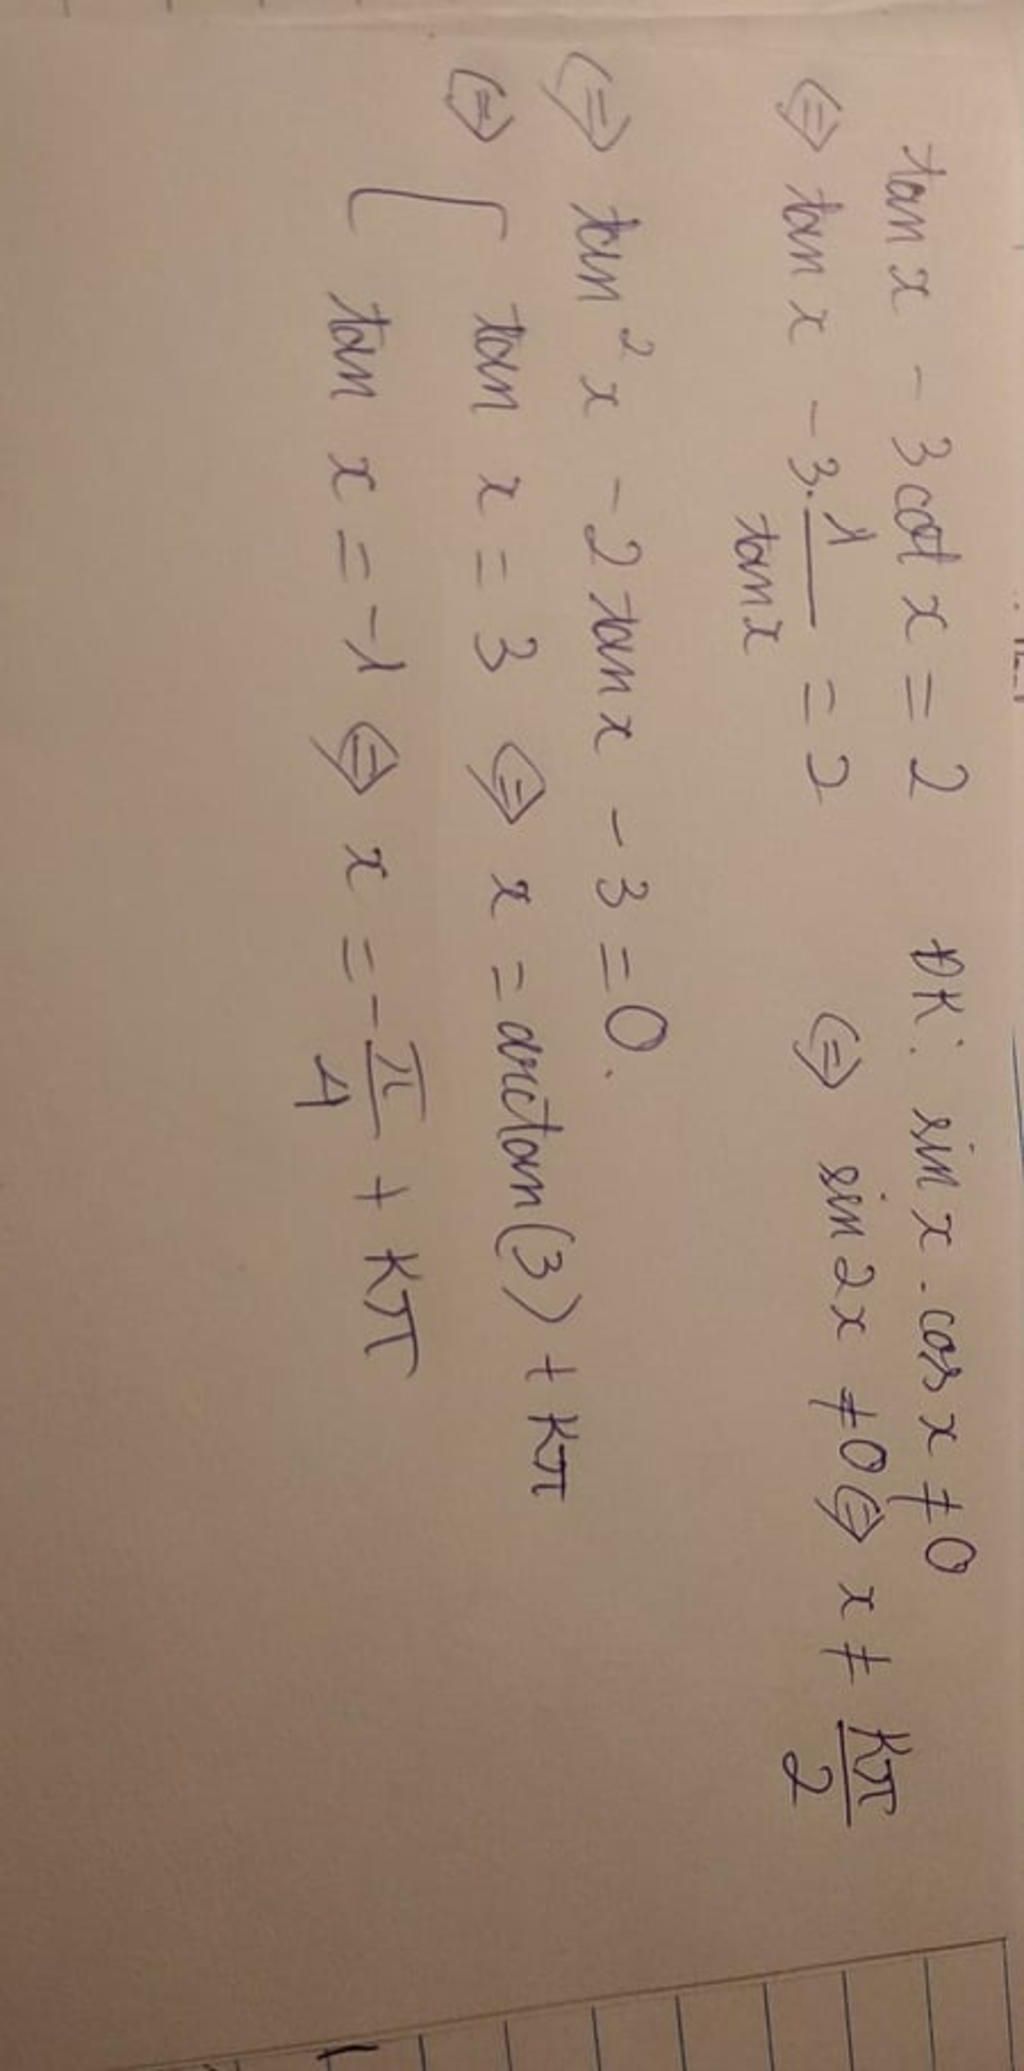 tan x - 3 cot x = 2 ĐK: sin x . cos x ≠ 0
⇔ tan x - 3. 1/tan x = 2 ⇔ sin 2x ≠ 0 ⇔ x ≠ kπ/2
⇔ tan² x - 2 tan x - 3 = 0.
⇔ [ tan x = 3 ⇔ x = arctan(3) + kπ
tan x = -1 ⇔ x = -π/4 + kπ